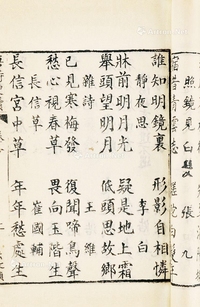 照鏡見白髮 張九
宿昔青雲志 蹉跎白髮年
誰知明鏡裏 形影自相憐
靜夜思 李白
牀前明月光 疑是地上霜
舉頭望明月 低頭思故鄉
雜詩 王維
已見寒梅發 復聞啼鳥聲
愁心視春草 畏向玉階生
長信草 崔國輔
長信宮中草 年年愁處生